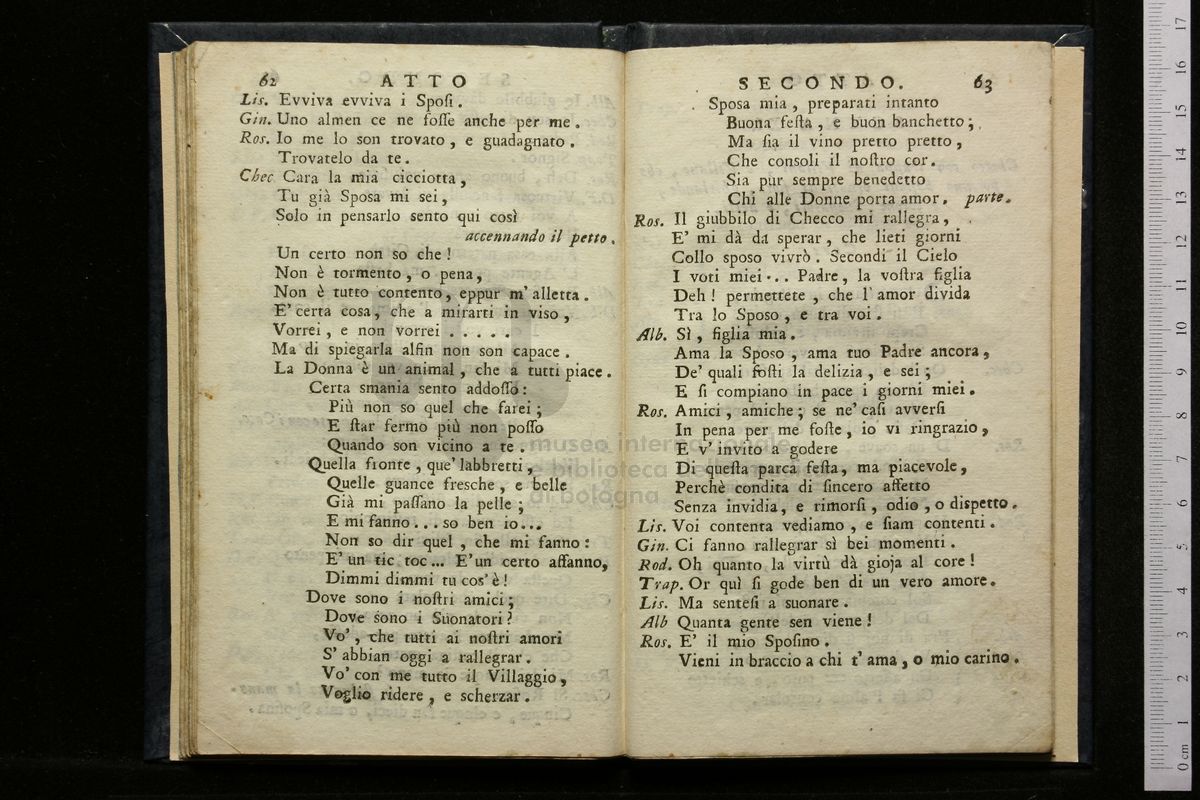 62 ATTO
Lis. Evviva evviva i Sposi.
Gin. Uno almen ce ne fosse anche per me.
Ros. Io me lo son trovato, e guadagnato.
Trovatelo da te.
Chec. Cara la mia cicciotta,
Tu già Sposa mi sei,
Solo in pensarlo sento qui così
accennando il petto.
Un certo non so che!
Non è tormento, o pena,
Non è tutto contento, eppur m' alletta.
E' certa cosa, che a mirarti in viso,
Vorrei, e non vorrei .....
Ma di spiegarla alfin non son capace.
La Donna è un animal, che a tutti piace.
Certa smania sento addosso:
Più non so quel che farei;
E star fermo più non posso
Quando son vicino a te.
Quella fronte, que' labbretti,
Quelle guance fresche, e belle
Già mi passano la pelle;
E mi fanno... so ben io...
Non so dir quel, che mi fanno:
E' un tic toc... E'un certo affanno,
Dimmi dimmi tu cos'è!
Dove sono i nostri amici;
Dove sono i Suonatori?
Vo', che tutti ai nostri amori
S' abbian oggi a rallegrar.
Vo' con me tutto il Villaggio,
Voglio ridere, e scherzar.
SECONDO. 63
Sposa mia, preparati intanto
Buona festa, e buon banchetto;
Ma sia il vino pretto pretto,
Che consoli il nostro cor.
Sia pur sempre benedetto
Chi alle Donne porta amor. parte.
Ros. Il giubbilo di Checco mi rallegra,
E' mi dà da sperar, che lieti giorni
Collo sposo vivrò. Secondi il Cielo
I voti miei... Padre, la vostra figlia
Deh! permettete, che l' amor divida
Tra lo Sposo, e tra voi.
Alb. Sì, figlia mia.
Ama la Sposo, ama tuo Padre ancora,
De' quali fosti la delizia, e sei;
E si compiano in pace i giorni miei.
Ros. Amici, amiche; se ne' casi avversi
In pena per me foste, io vi ringrazio,
E v' invito a godere
Di questa parca festa, ma piacevole,
Perchè condita di sincero affetto
Senza invidia, e rimorsi, odio, o dispetto.
Lis. Voi contenta vediamo, e siam contenti.
Gin. Ci fanno rallegrar sì bei momenti.
Rod. Oh quanto la virtù dà gioja al core!
Trap. Or quì si gode ben di un vero amore.
Lis. Ma sentesi a suonare.
Alb Quanta gente sen viene!
Ros. E' il mio Sposino.
Vieni in braccio a chi t' ama, o mio carino.
museo internazionale
e biblioteca della musica
di bologna
0 cm 1 2 3 4 5 6 7 8 9 10 11 12 13 14 15 16 17